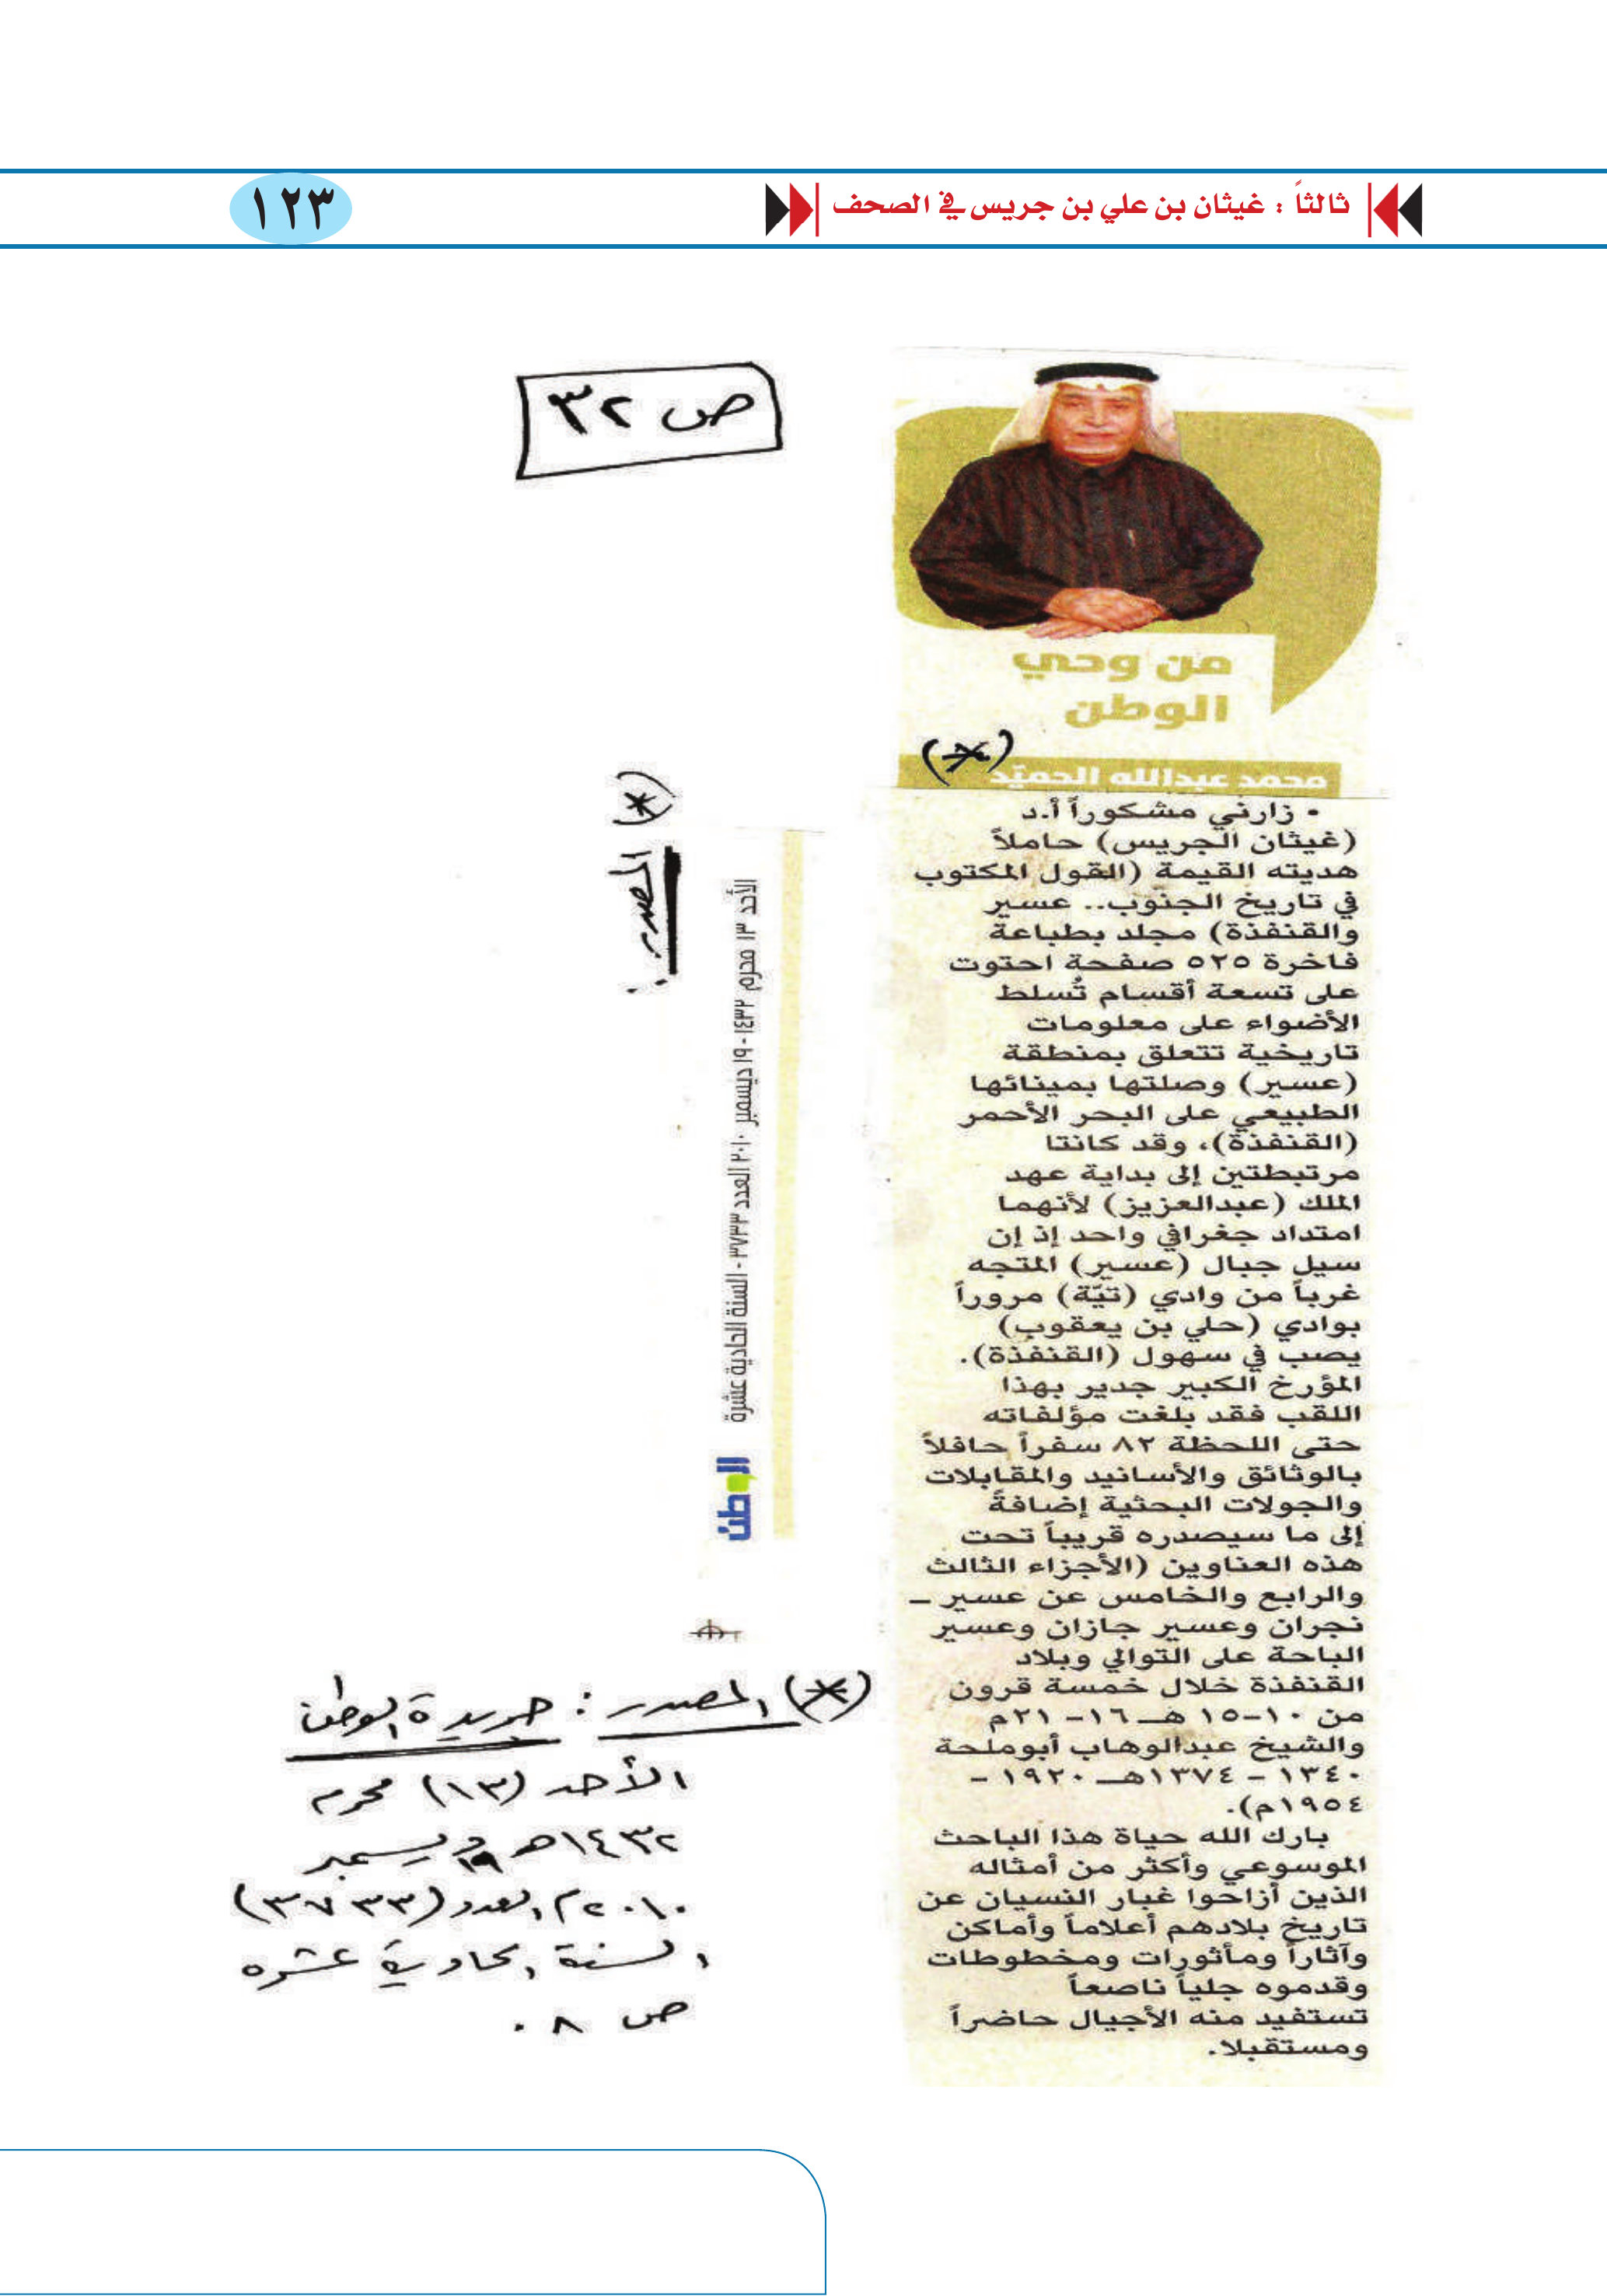 ثالثاً : غيثان بن علي بن جريس في الصحف
١٢٣
ص ٣٢
من وحي
الوطن
محمد عبدالله الحميّد
(*)
• زارني مشكوراً أ.د
(غيثان الجريس) حاملاً
هديته القيمة (القول المكتوب
في تاريخ الجنوب.. عسير
والقنفذة) مجلد بطباعة
فاخرة ٥٢٥ صفحة احتوت
على تسعة أقسام تُسلط
الأضواء على معلومات
تاريخية تتعلق بمنطقة
(عسير) وصلتها بمينائها
الطبيعي على البحر الأحمر
(القنفذة)، وقد كانتا
مرتبطتين إلى بداية عهد
الملك (عبدالعزيز) لأنهما
امتداد جغرافي واحد إذ إن
سيل جبال (عسير) المتجه
غرباً من وادي (تيّة) مروراً
بوادي (حلي بن يعقوب)
يصب في سهول (القنفذة).
المؤرخ الكبير جدير بهذا
اللقب فقد بلغت مؤلفاته
حتى اللحظة ٨٢ سفراً حافلاً
بالوثائق والأسانيد والمقابلات
والجولات البحثية إضافةً
إلى ما سيصدره قريباً تحت
هذه العناوين (الأجزاء الثالث
والرابع والخامس عن عسير ـ
نجران وعسير جازان وعسير
الباحة على التوالي وبلاد
القنفذة خلال خمسة قرون
من ١٠-١٥ هـ ١٦- ٢١م
والشيخ عبدالوهاب أبوملحة
١٣٤٠ - ١٣٧٤هـ ١٩٢٠ -
١٩٥٤م).
بارك الله حياة هذا الباحث
الموسوعي وأكثر من أمثاله
الذين أزاحوا غبار النسيان عن
تاريخ بلادهم أعلاماً وأماكن
وآثاراً ومأثورات ومخطوطات
وقدموه جلياً ناصعاً
تستفيد منه الأجيال حاضراً
ومستقبلا.
(*) المصدر :
الأحد ١٣ محرم ١٤٣٢ - ١٩ ديسمبر ٢٠١٠ العدد ٣٧٣٣ - السنة الحادية عشرة
الوطن
(*) المصدر : جريدة الوطن
الأحد (١٣) محرم
١٤٣٢هـ ١٩ ديسمبر
٢٠١٠م العدد (٣٧٣٣)
السنة الحادية عشره
ص ٨ .